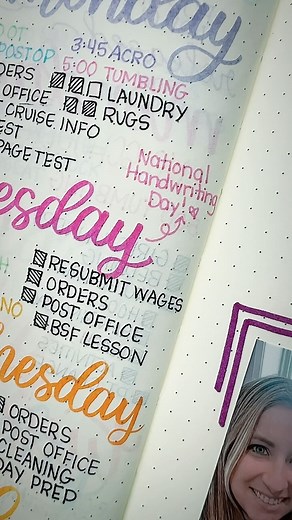 Monday
3:45 ACRO
POST OP 5:00 TUMBLING
LAUNDRY
OFFICE RUGS
CRUISE INFO
PAGE TEST
National
Handwriting
Day!
esday
RESUBMIT WAGES
ORDERS
POST OFFICE
BSF LESSON
nesday
ORDERS
POST OFFICE
CLEANING
DAY PREP